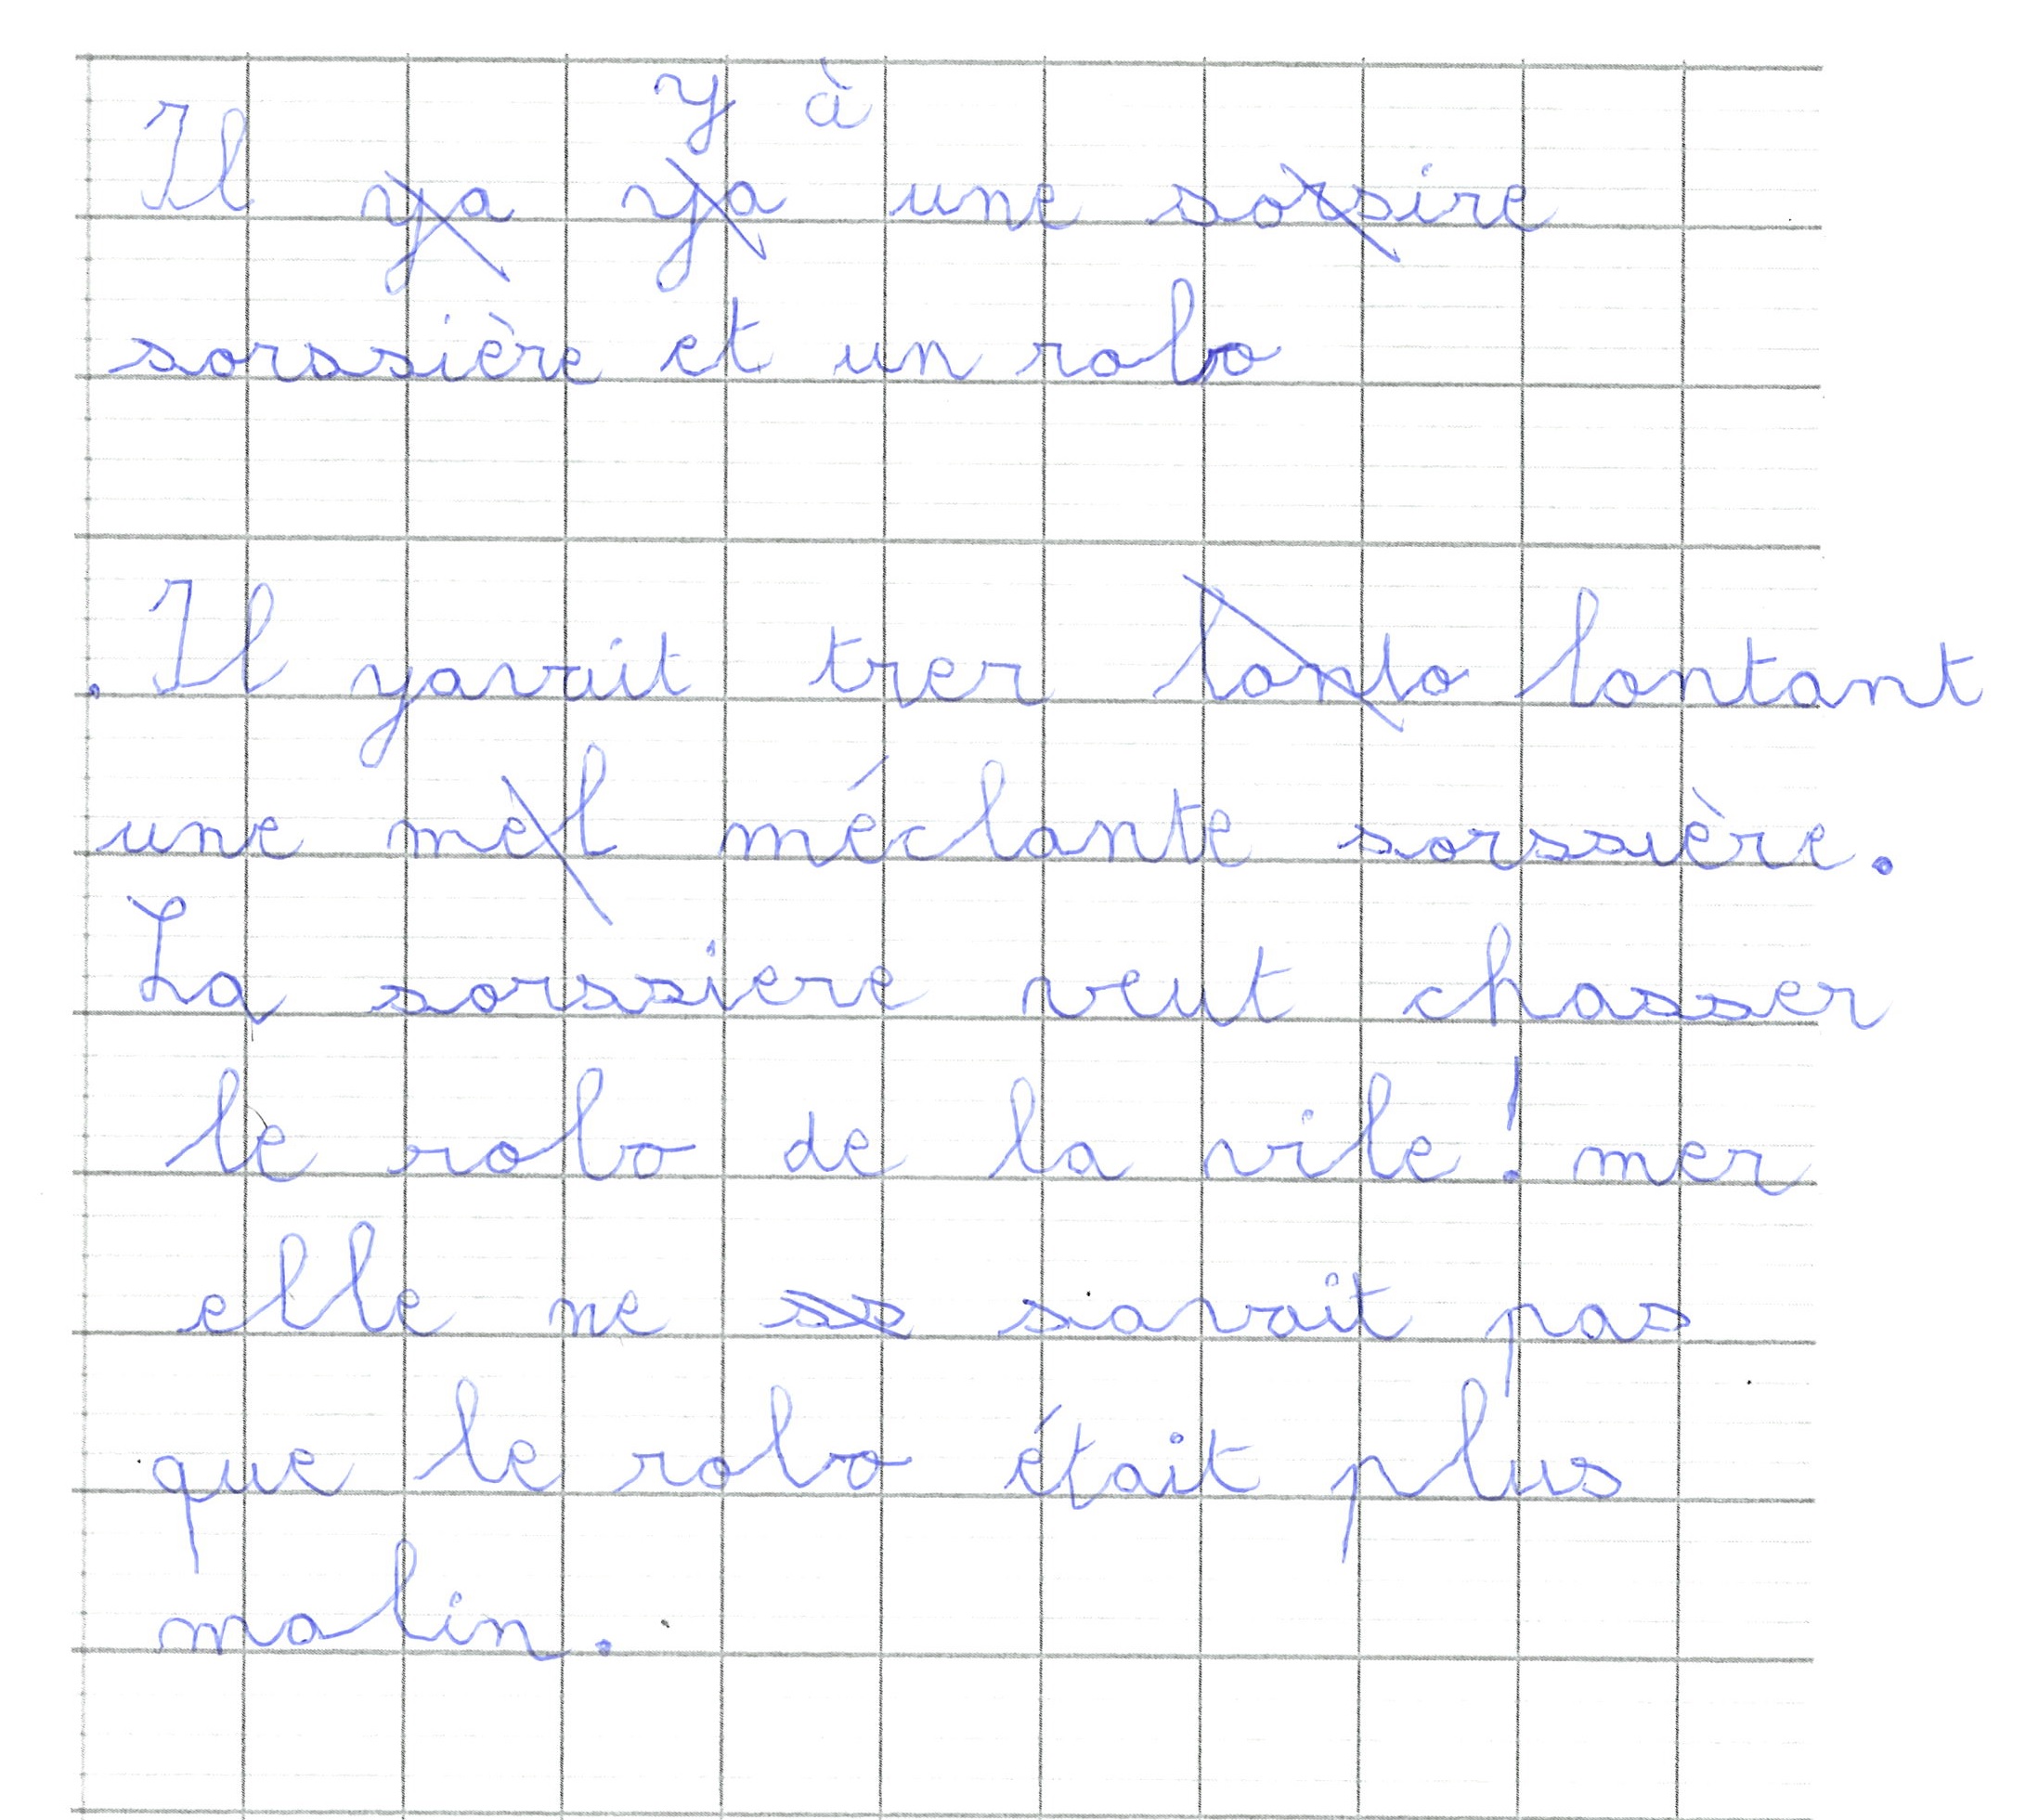 y à
Il ya ya une sorsire
sorssière et un robo
. Il yavait trer lonto lontant
une mel méclante sorssière.
La sorssiere veut chasser
le robo de la vile! mer
elle ne ss savait pas
que le robo était plus
malin.